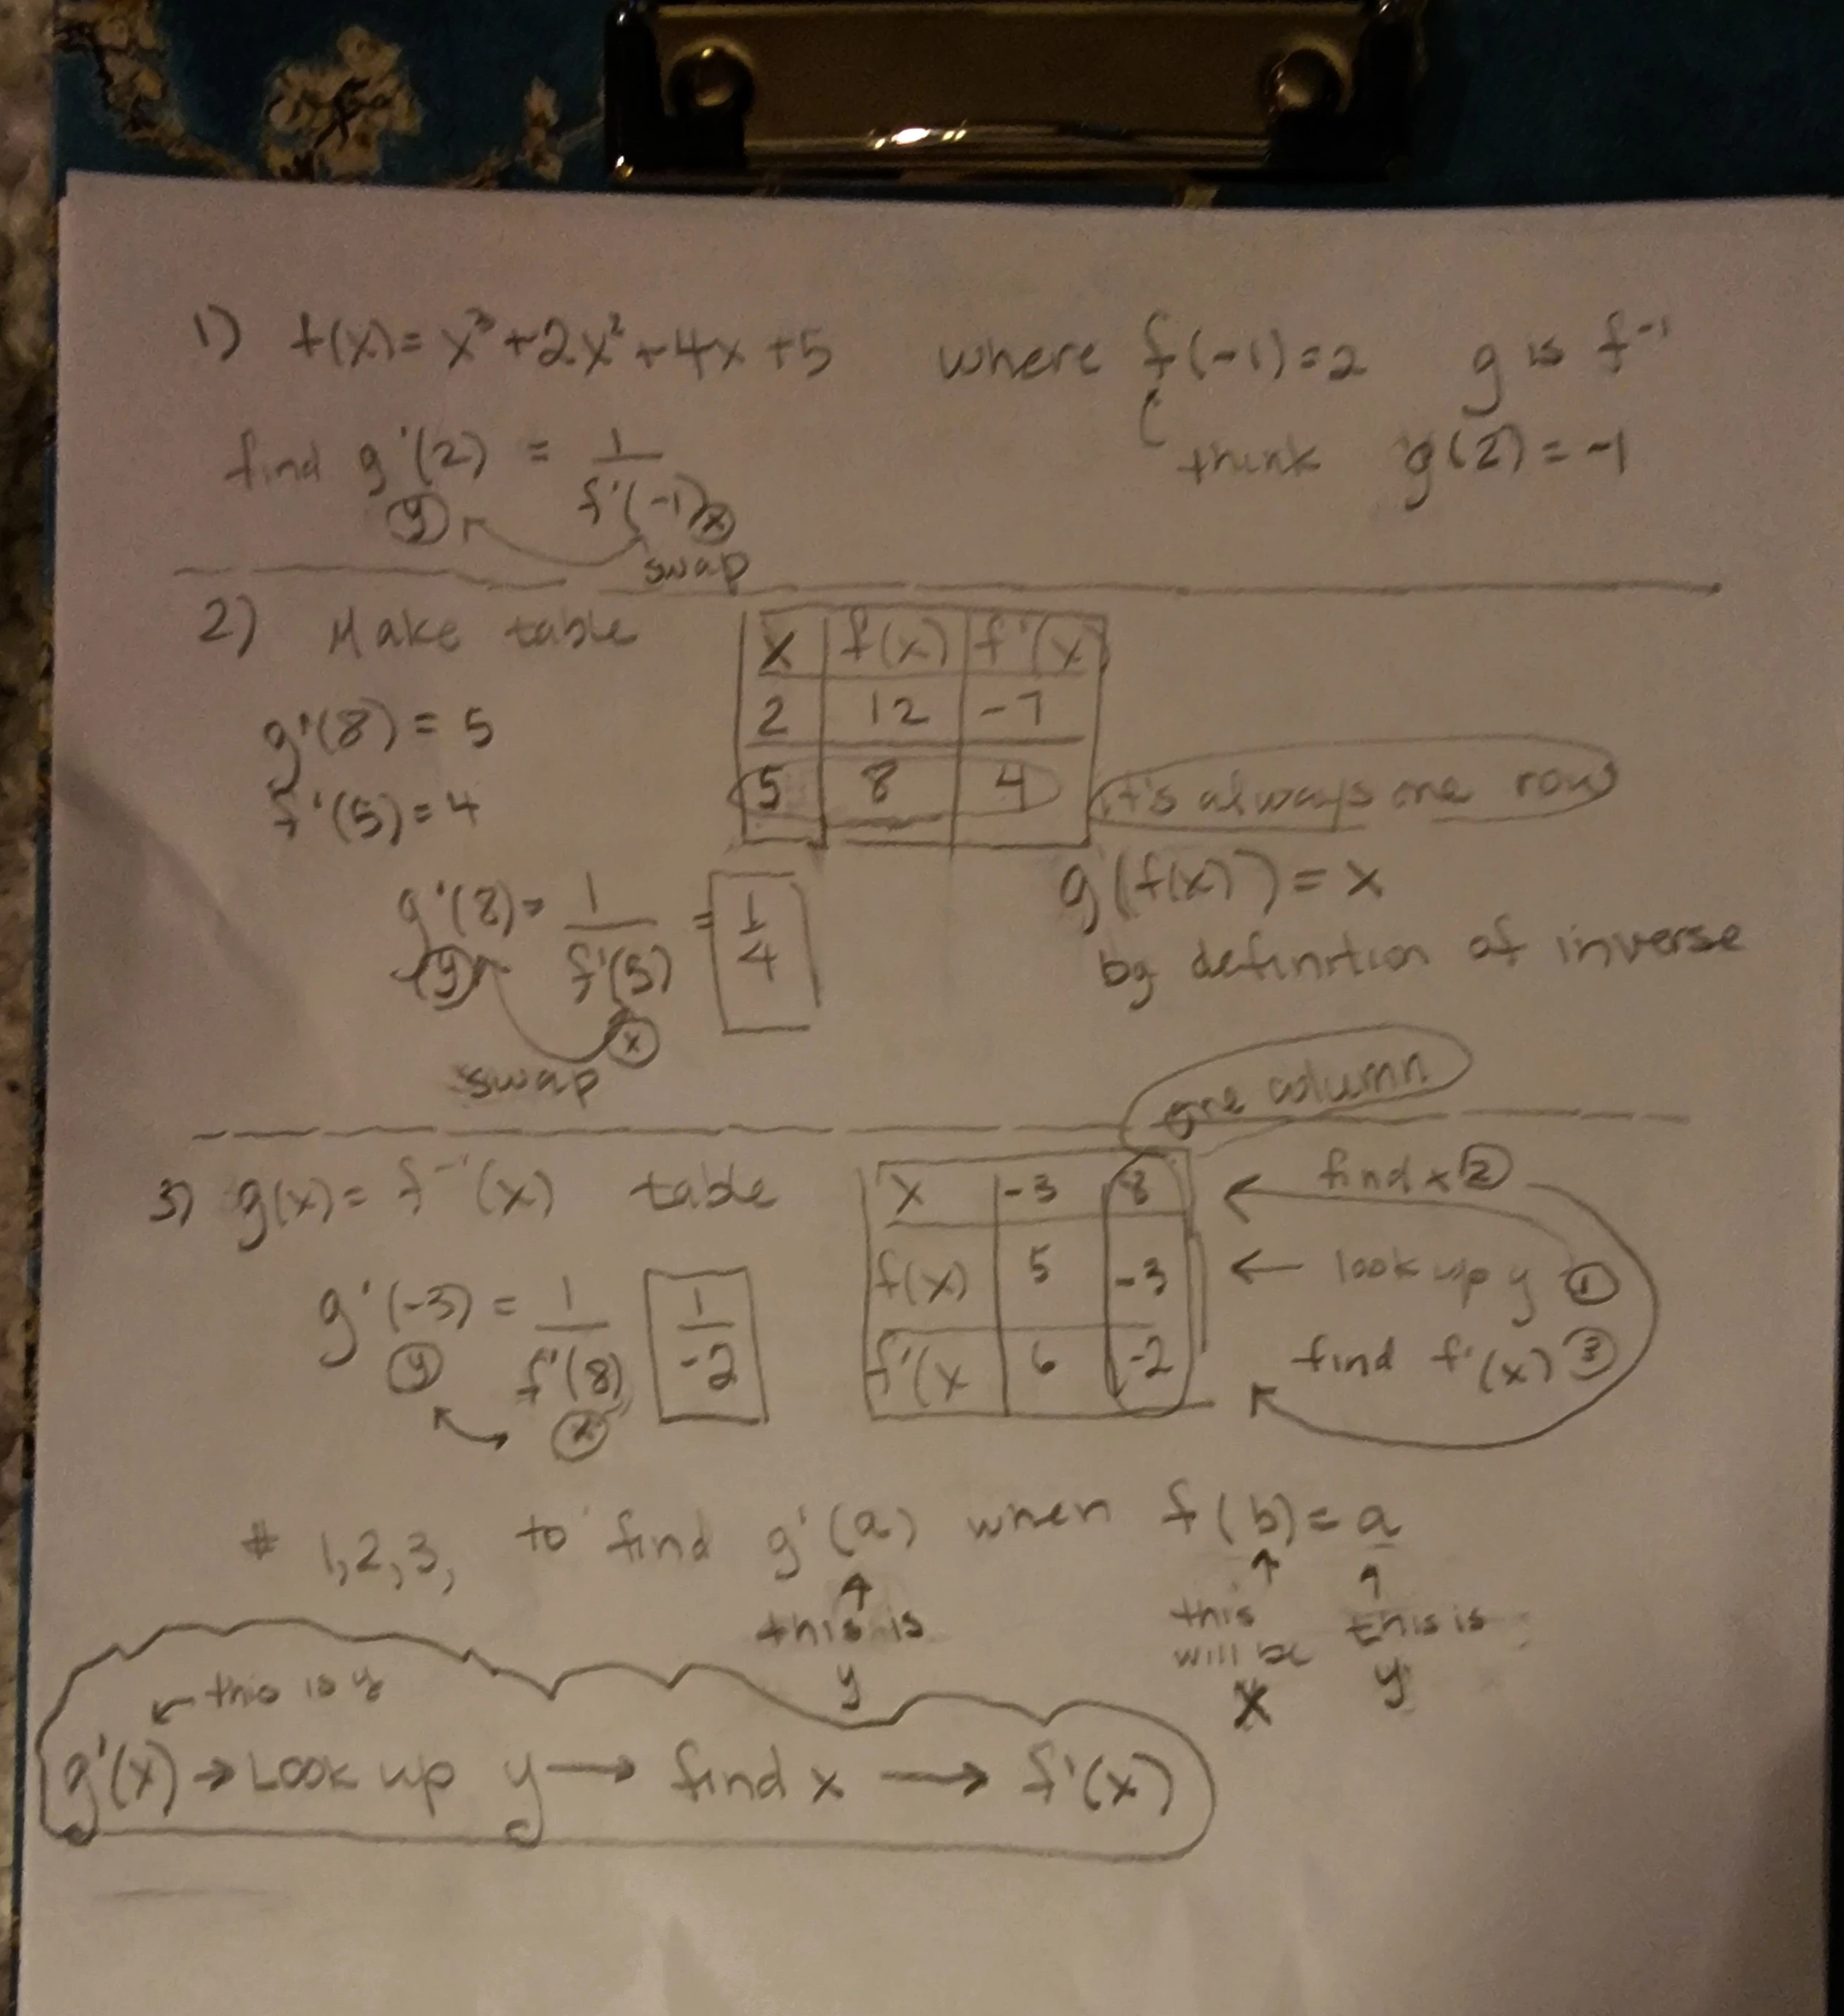 1) f(x) = x³ + 2x² + 4x + 5 where f(-1) = 2 g is f⁻¹
find g'(2) = 1/f'(-1) think g(2) = -1
y x
swap
2) Make table
x f(x) f'(x)
2 12 -7
5 8 4
g'(8) = 5
f'(5) = 4
it's always one row
g(f(x)) = x
by definition of inverse
g'(8) = 1/f'(5) = 1/4
y x
swap
one column
3) g(x) = f⁻¹(x) table
x -3 8 ← find x 2
f(x) 5 -3 ← look up y 1
f'(x 6 -2 find f'(x) 3
g'(-3) = 1/f'(8) 1/-2
y x
# 1,2,3, to find g'(a) when f(b) = a
this is y
this will be x
this is y
← this is y
g'(x) → Look up y → find x → f'(x)